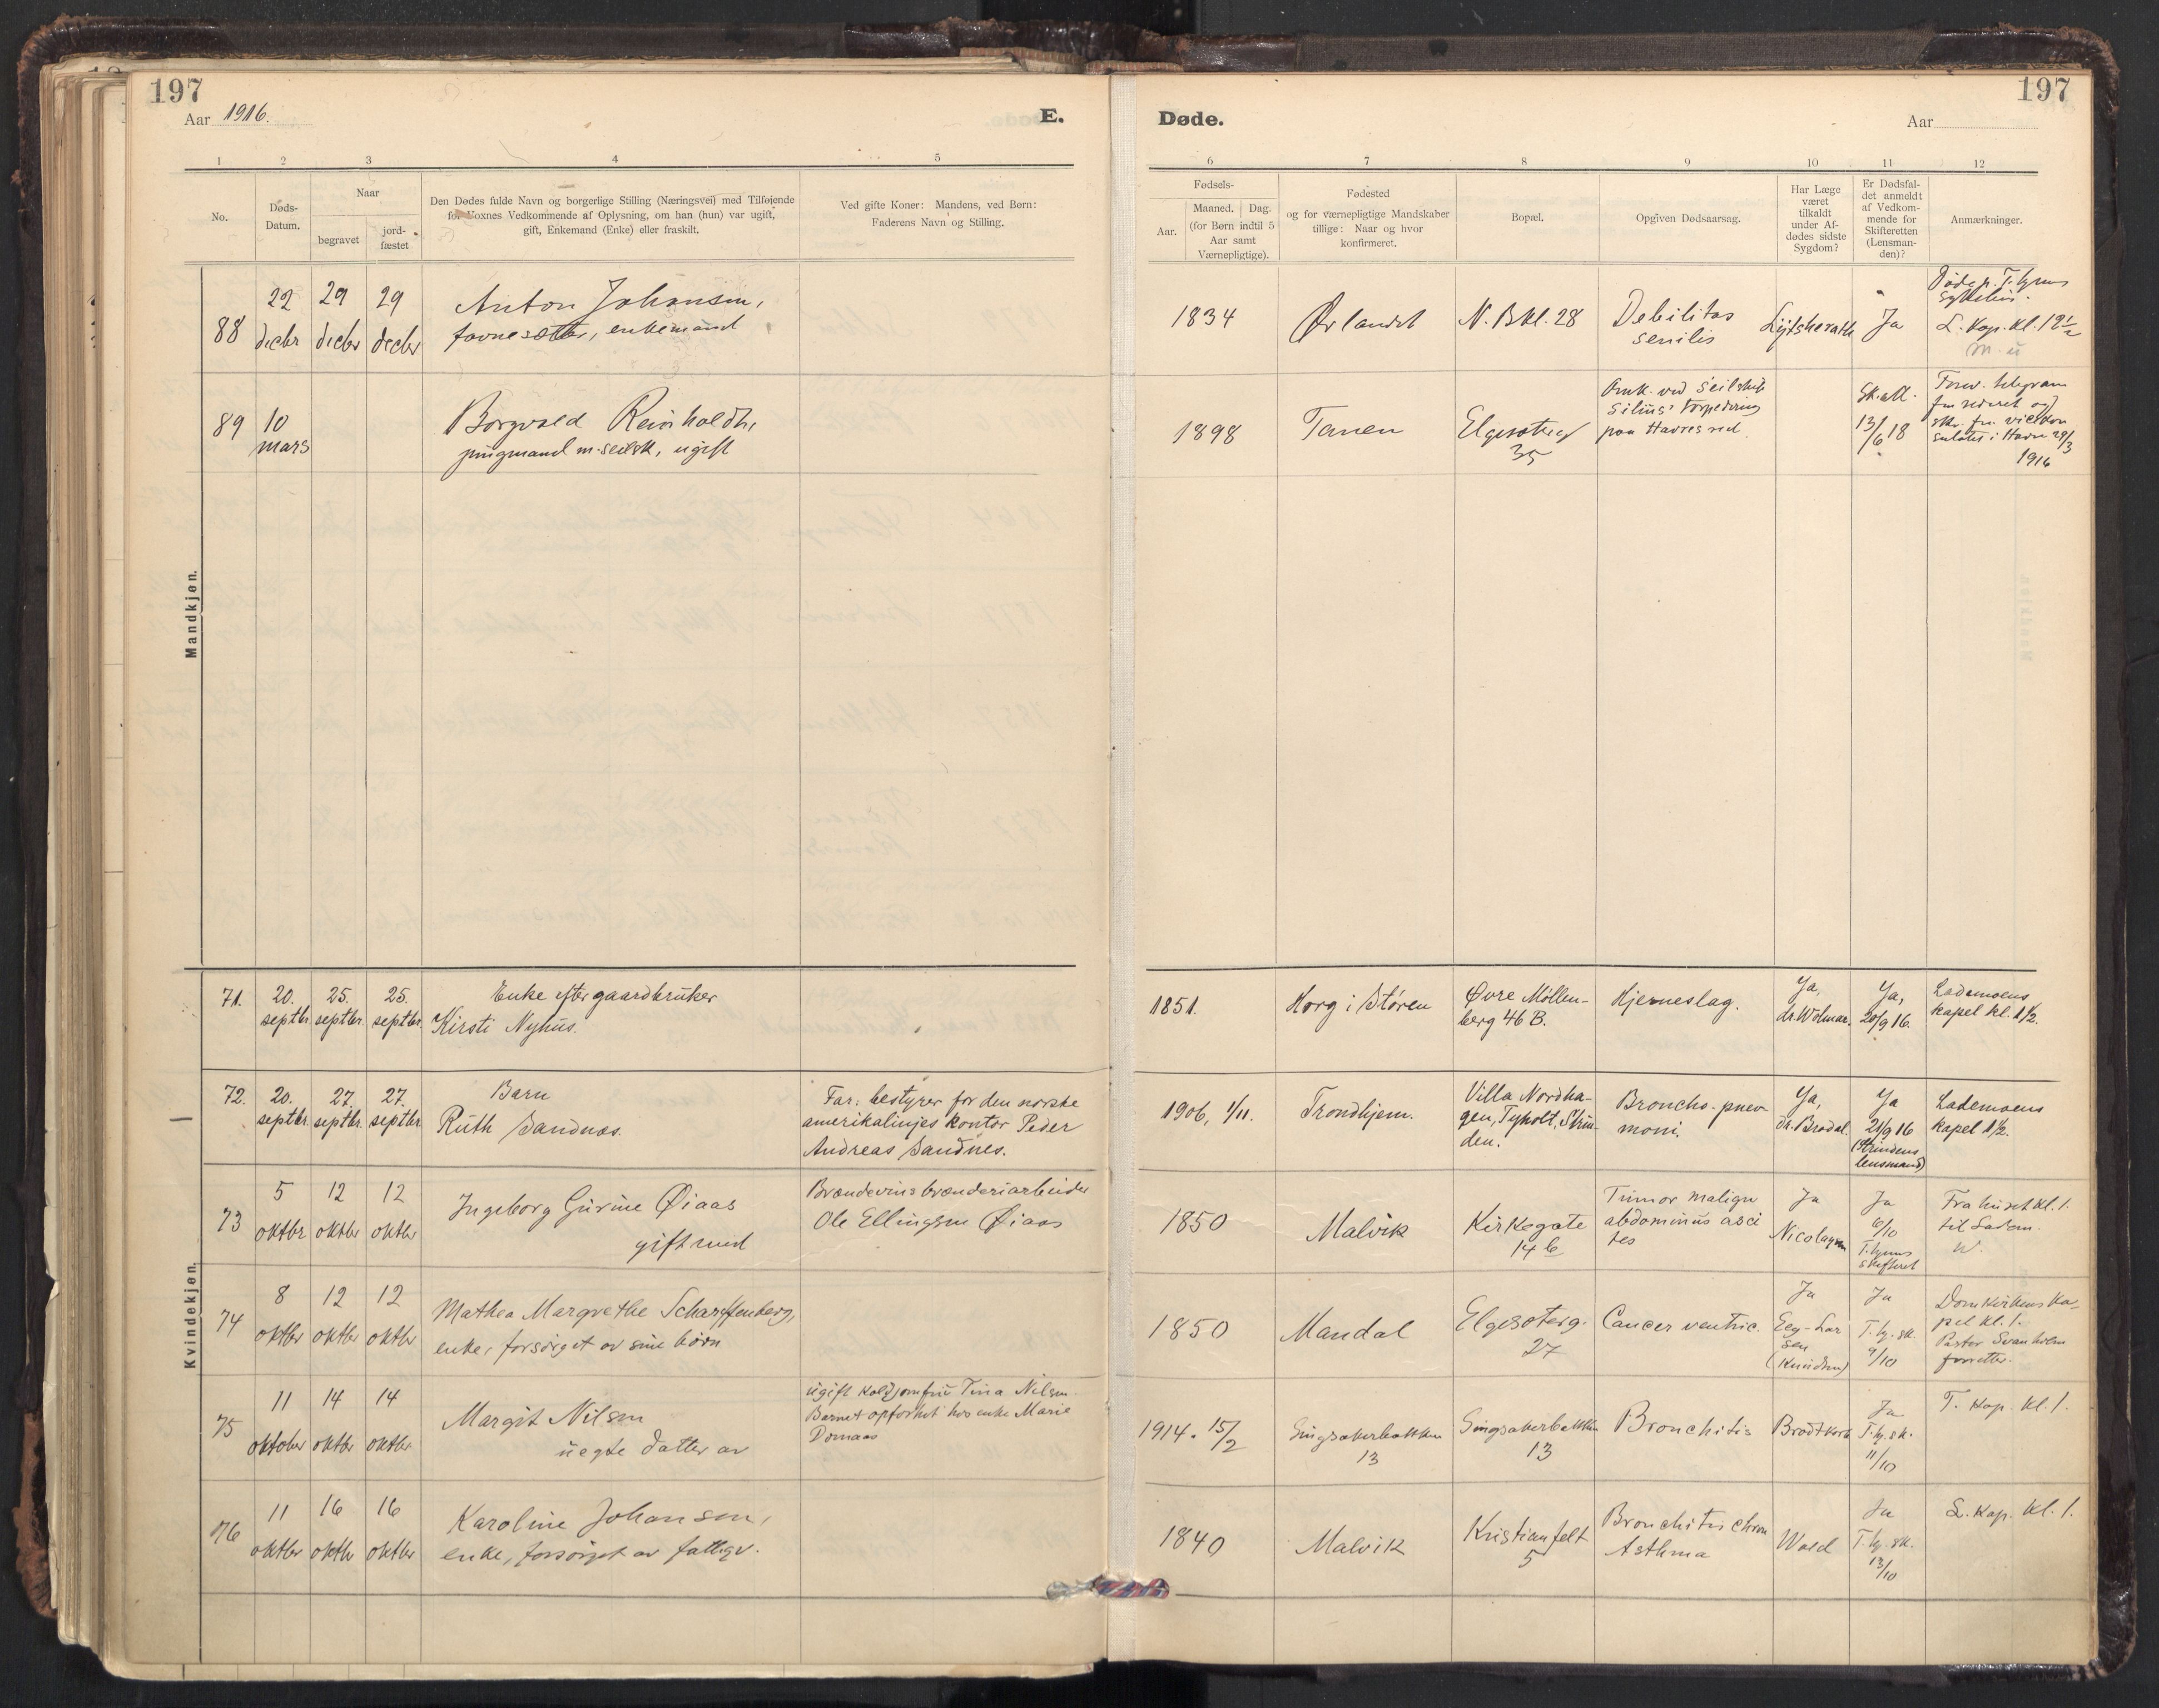 197
Aar 1916.
E.
1
2
3
4
5
No.
Døds-
Datum.
Naar
begravet
jord-
fæstet
Den Dødes fulde Navn og borgerlige Stilling (Næringsvei) med Tilføiende
for Voxnes Vedkommende af Oplysning, om han (hun) var ugift,
gift, Enkemand (Enke) eller fraskilt.
Ved gifte Koner: Mandens, ved Børn:
Faderens Navn og Stilling.
Mandkjøn.
88
22
decbr
29
decbr
29
decbr
Anton Johansen,
favnesætter, enkemand
89
10
mars
Borgvald Reinholdt,
jungmand m. seilsk, ugift
Kvindekjøn.
71.
20.
septbr.
25.
septbr.
25.
septbr.
Enke efter gaardbruker
Kirsti Nyhus.
72.
20.
septbr.
27.
septbr.
27.
septbr.
Barn
Ruth Sandnæs.
Far: bestyrer for den norske
amerikalinjes kontor Peder
Andreas Sandnes.
73
5
oktbr
12
oktbr
12
oktbr
Ingeborg Gurine Øiaas
gift med
Brændevinsbrænderiarbeider
Ole Ellingsen Øiaas
74
8
oktbr
12
oktbr
12
oktbr
Mathea Margrethe Scharffenberg,
enke, forsørget av sine børn
75
11
oktober
14
oktbr
14
oktbr
Margit Nilsen
uegte datter av
ugift koldjomfru Tina Nilsen
Barnet opfostret hos enke Marie
Domaas
76
11
oktbr
16
oktbr
16
oktbr
Karoline Johansen,
enke, forsørget av fattigv.
197
Døde.
Aar
6
7
8
9
10
11
12
Fødsels-
Aar.
Maaned.
Dag.
(for Børn indtil 5
Aar samt
Værnepligtige).
Fødested
og for værnepligtige Mandskaber
tillige: Naar og hvor
konfirmeret.
Bopæl.
Opgiven Dødsaarsag.
Har Læge
været
tilkaldt
under Af-
dødes sidste
Sygdom?
Er Dødsfal-
det anmeldt
af Vedkom-
mende for
Skifteretten
(Lensman-
den)?
Anmærkninger.
1834
Ørlandet
N. Bkl. 28
Debilitas
senilis
Ja
L. kap. kl. 12½
1898
Tanen
Elgesæterg
35
Omk. ved seilskib
Silius' torpedering
paa Havres red.
13/6 18
Forev. telegram
fra rederiet og
skr. fra vicekon
sulatet i Havre 29/3
1916
1851.
Horg i Støren
Øvre Møllen-
berg 46 B.
Hjerneslag.
Ja,
dr. Wolmar.
Ja,
20/9 16.
Lademoens
kapel kl. 1½.
1906, 1/11.
Trondhjem.
Villa Nordha-
gen, Tyholt, Strin-
den.
Broncho-pnev-
moni.
Ja,
dr. Brodal.
Ja
21/9 16
(Strindens
lensmand)
Lademoens
kapel 1½.
1850
Malvik
Kirkegate
14 b
Tumor malign
abdominus asci
tes
Ja
Nicolaysen
Ja
6/10
T.hjems
skifteret
Fra huset kl. 1.
til Ladem.
1850
Mandal
Elgesæterg.
27
Cancer ventric.
Ja
Eeg-Lar
sen
(Knudsen)
Ja
T.hj. sk.
9/10
Domkirkens ka-
pel kl. 1.
Pastor Svanholm
forretter.
1914. 15/2
Singsakerbakken
13
Singsakerbakken
13
Bronchitis
Brodtkorb
Ja
T.hj. sk.
11/10
T. kap. kl. 1.
1840
Malvik
Kristianfelt
5
Bronchitis chron
Asthma
Wold
Ja
T.hj. sk.
13/10
L. kap. kl. 1.